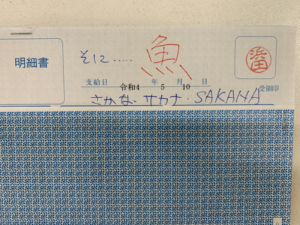 そに.....魚
明細書
支給日 令和4年5月10日
さかな サカナ・SAKANA
受領印